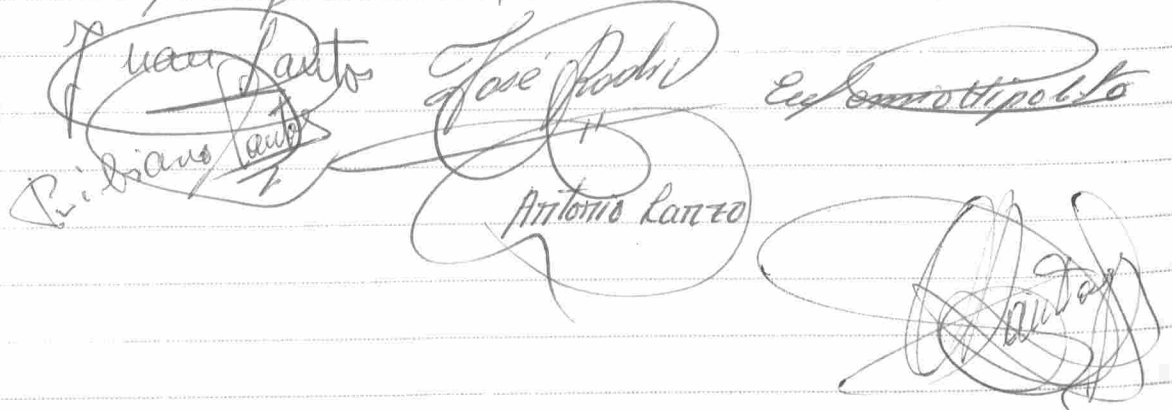 Juan Santos
José Rodri
Hipolito
Bibiano Santos
Antonio Lanzo
Santos